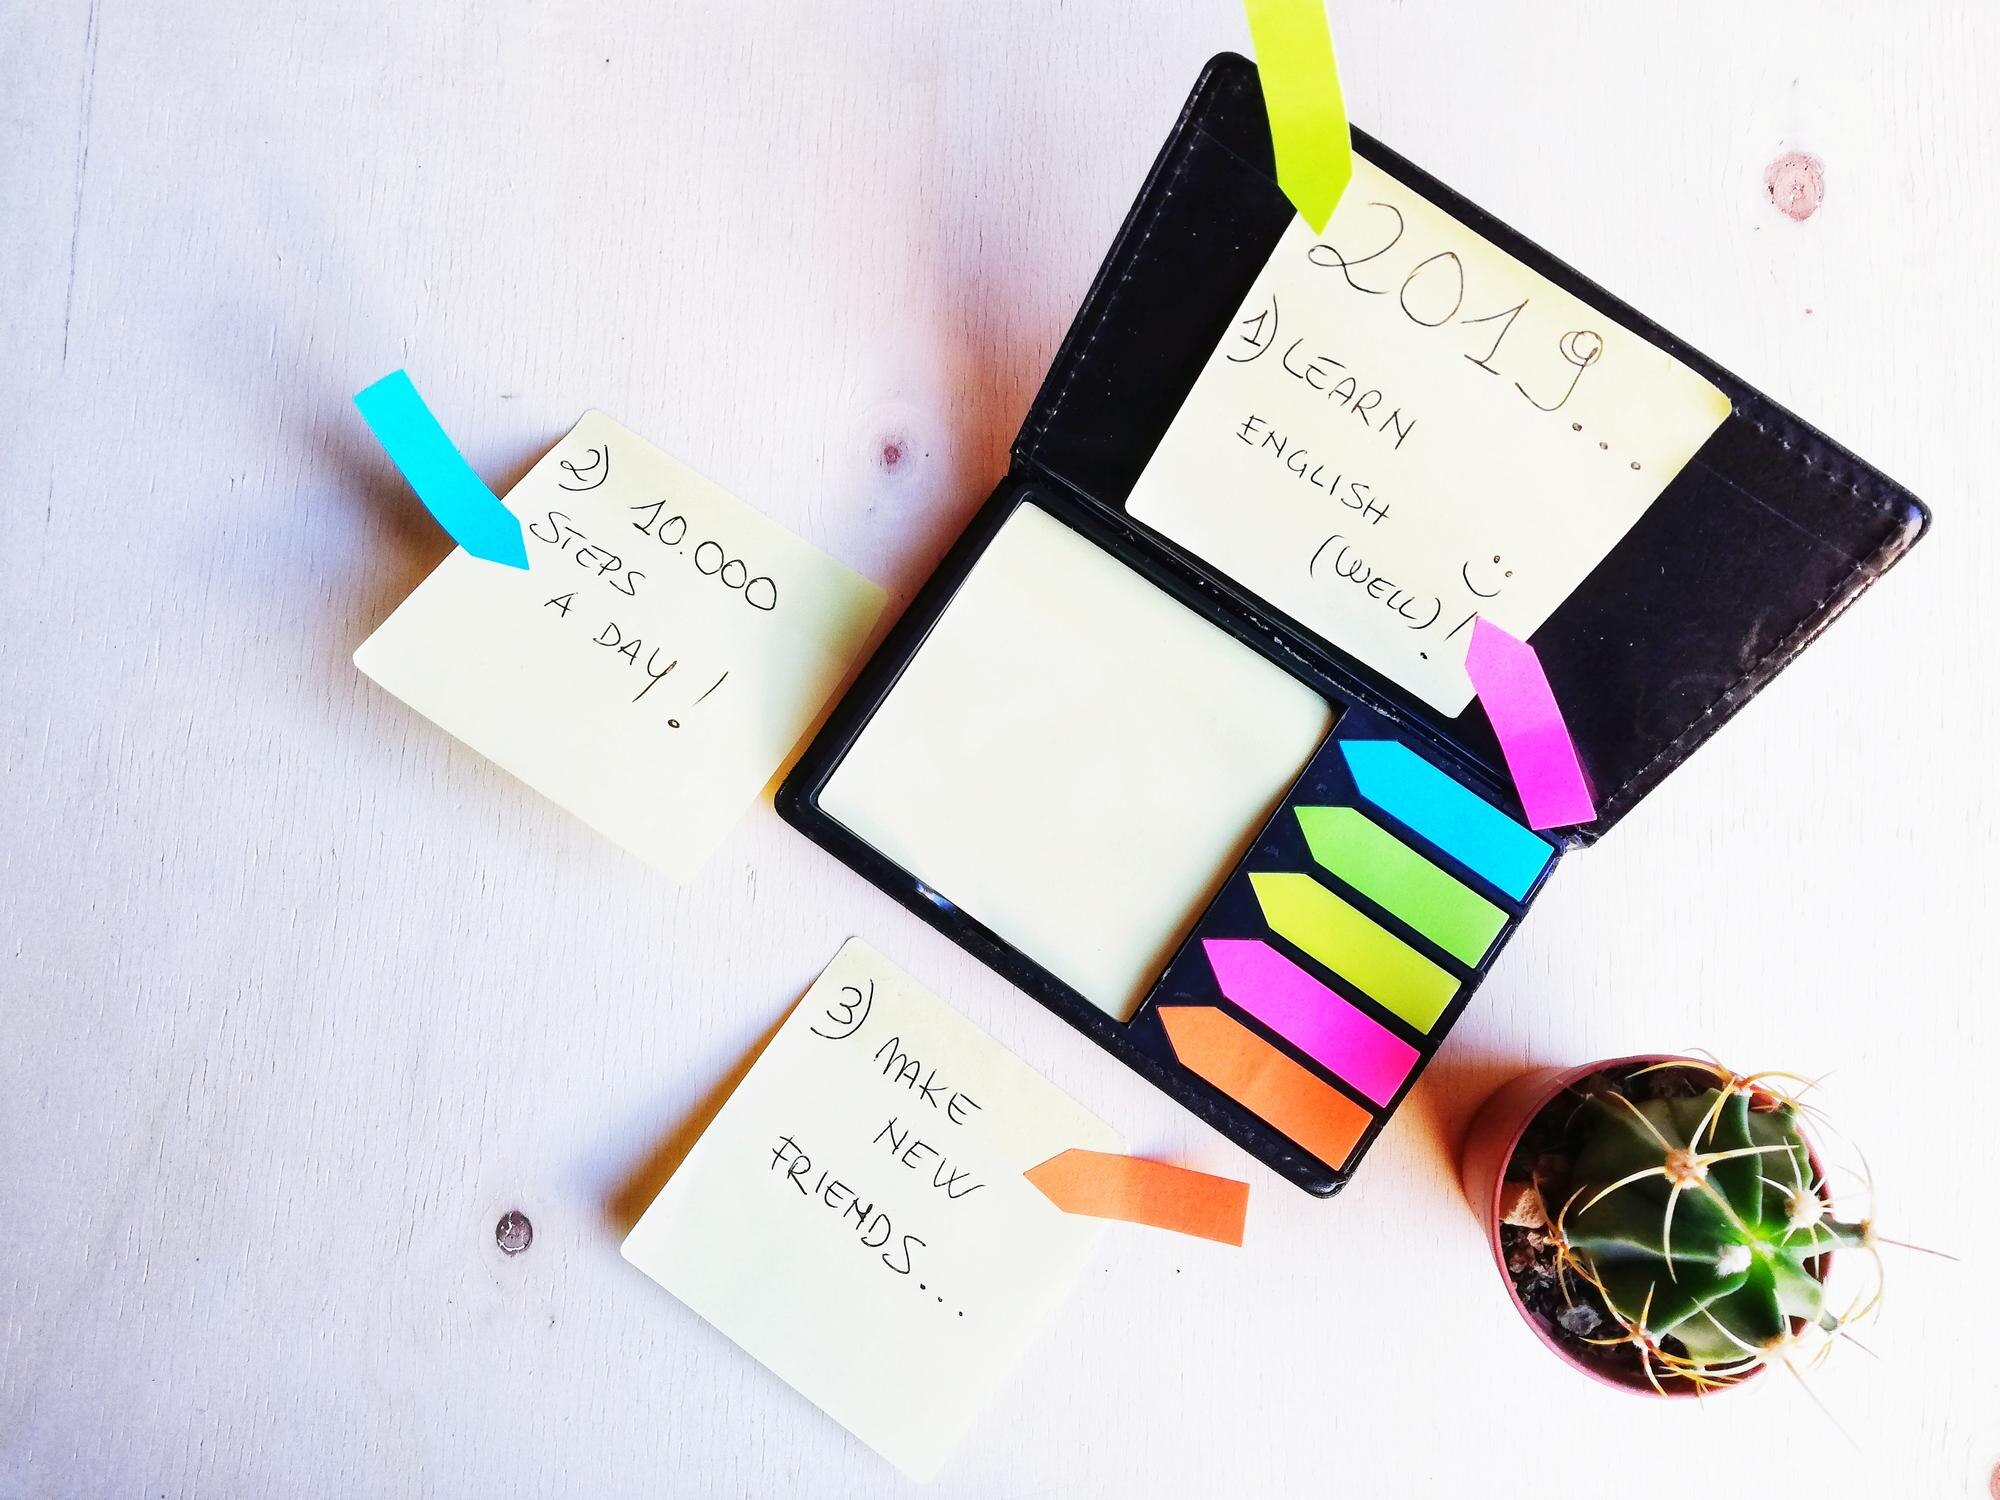 2019...
1) LEARN
ENGLISH
(WELL)!
2) 10.000
STEPS
A DAY!
3) MAKE
NEW
FRIENDS...